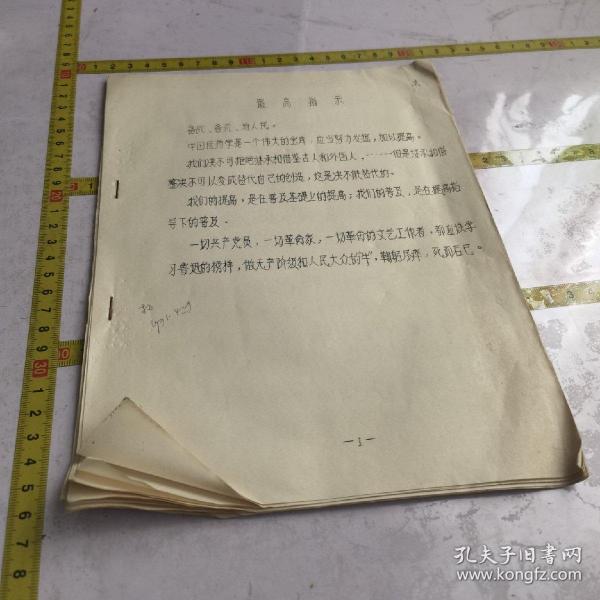 最高指示
备战、备荒、为人民。
中国医药学是一个伟大的宝库，应当努力发掘，加以提高。
我们决不可拒绝继承和借鉴古人和外国人，………但是继承和借
鉴决不可以变成替代自己的创造，这是决不能替代的。
我们的提高，是在普及基础上的提高；我们的普及，是在提高指
导下的普及。
一切共产党员，一切革命家，一切革命的文艺工作者，都应该学
习鲁迅的榜样，做无产阶级和人民大众的"牛"，鞠躬尽瘁，死而后已。
—1—
孔夫子旧书网
www.kongfz.com